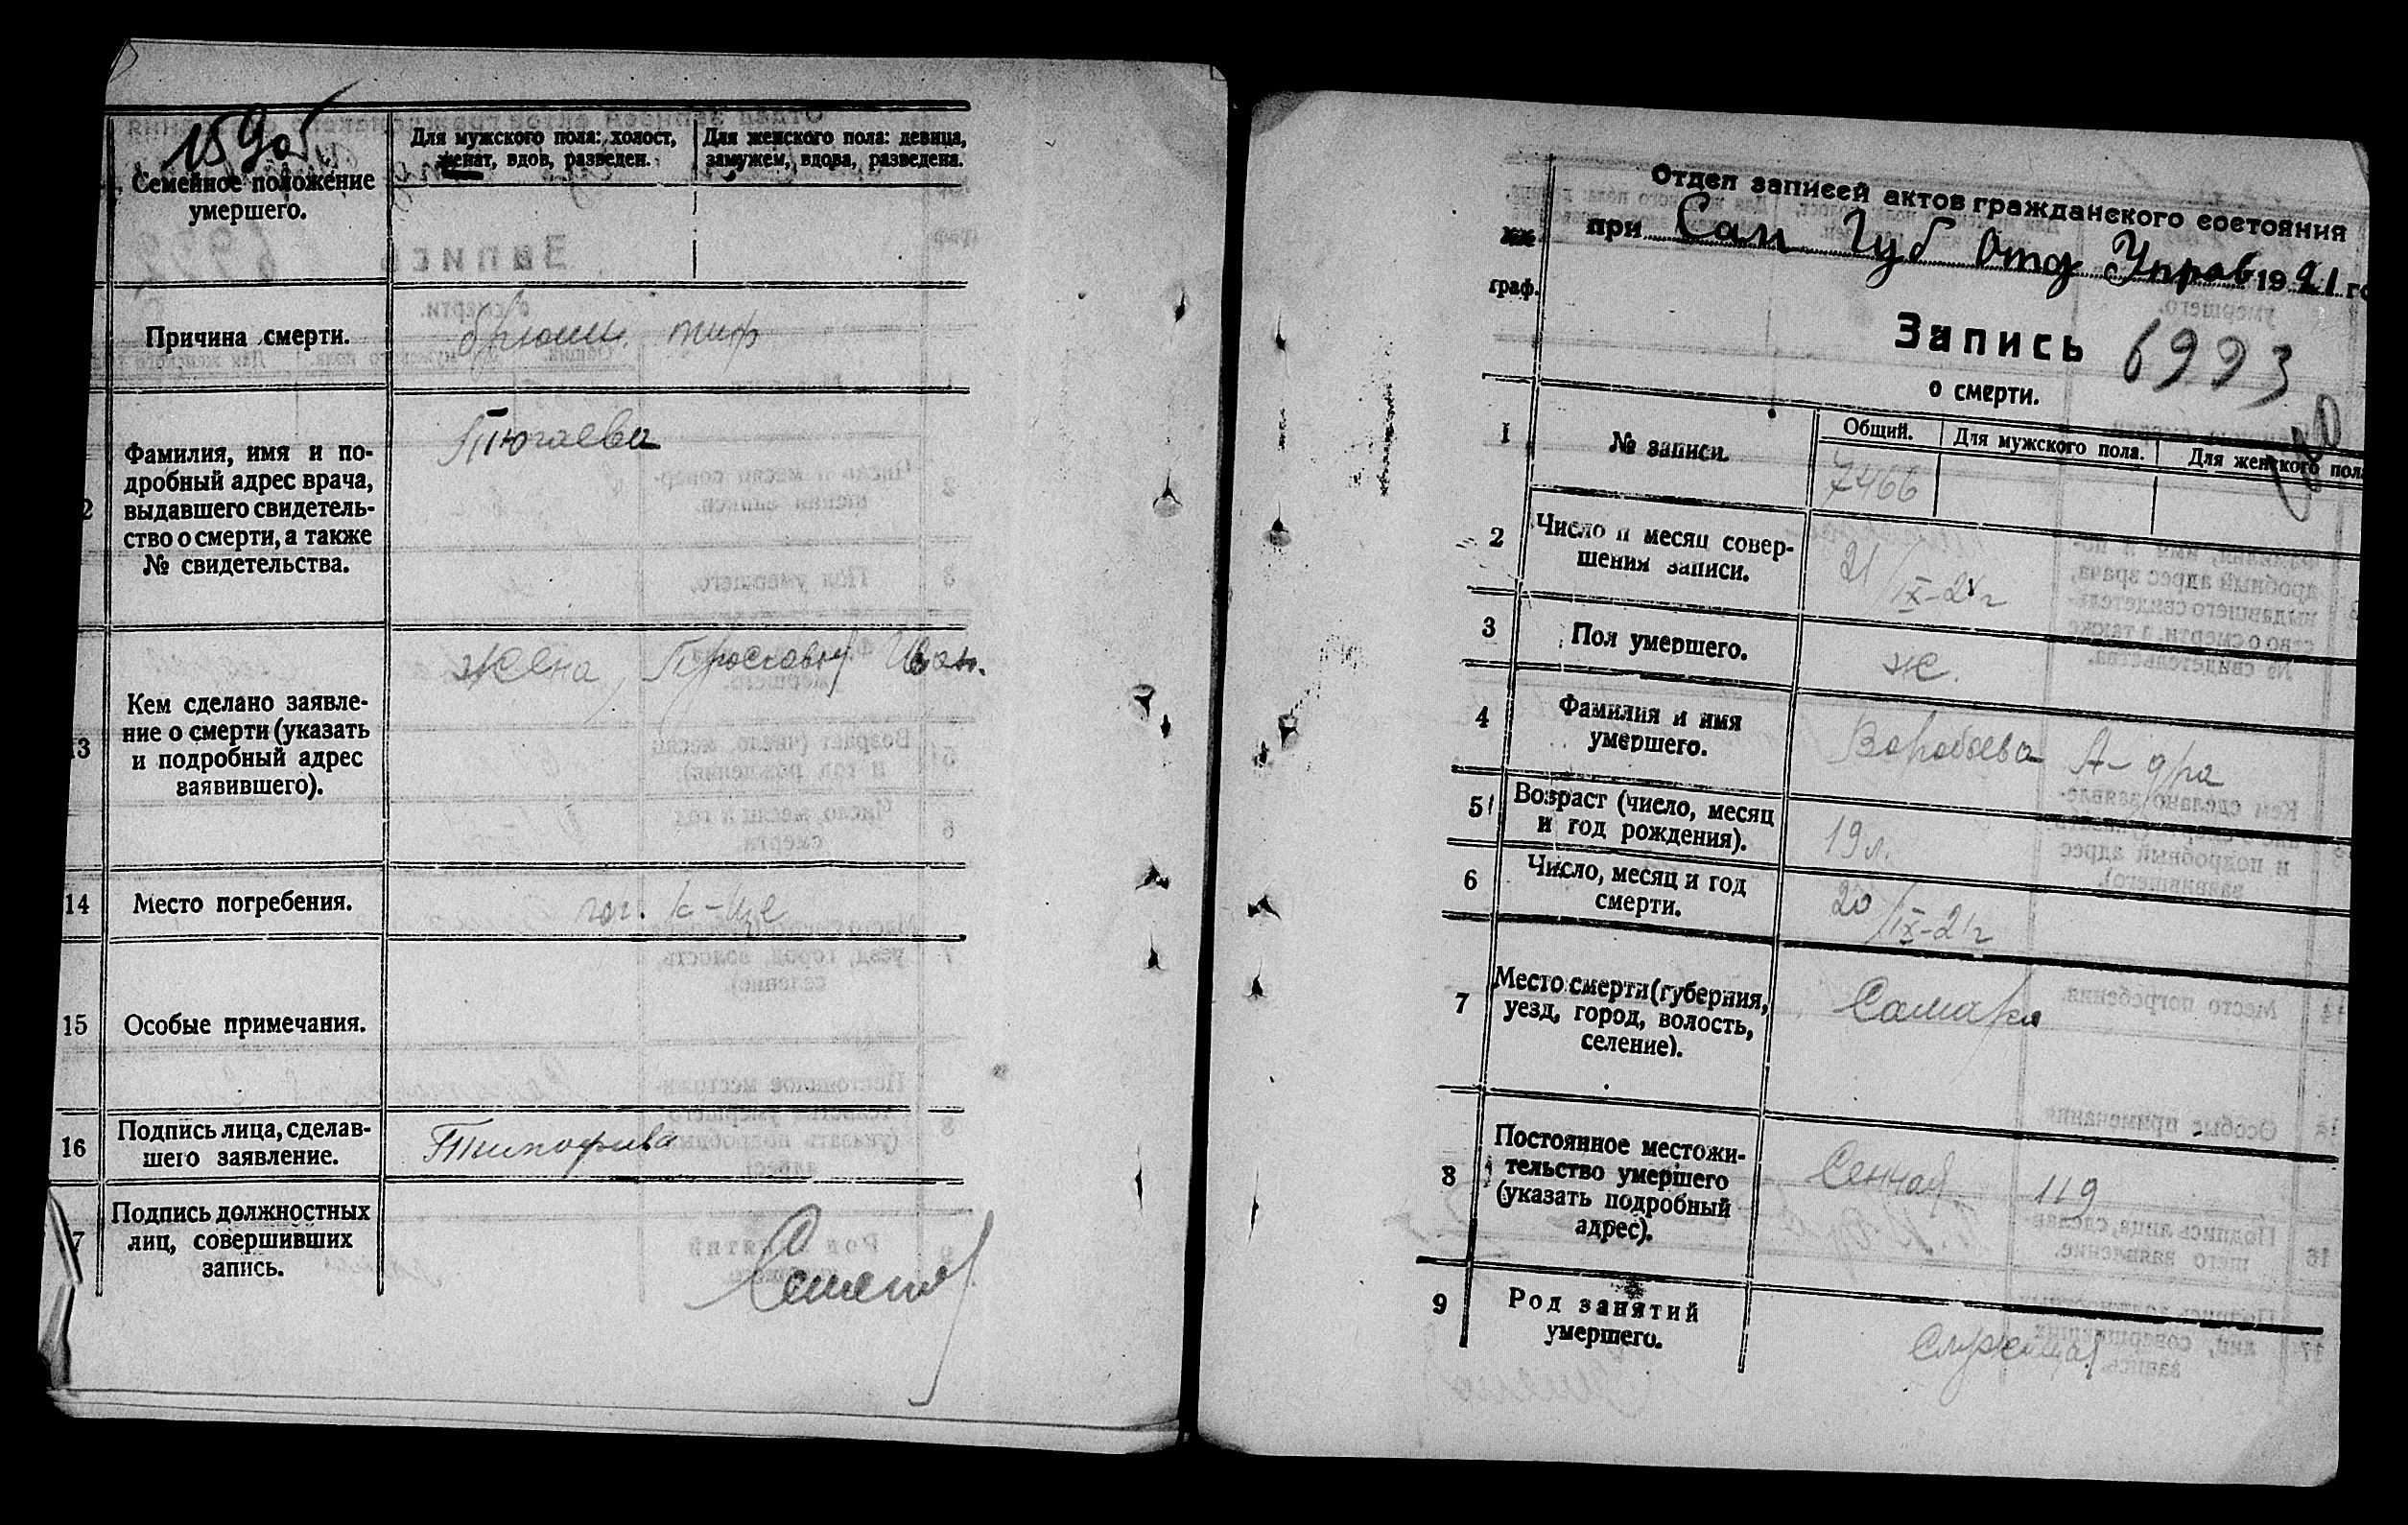 1590б
Для мужского пола: холост,
женат, вдов, разведен.
Для женского пола: девица,
замужем, вдова, разведена.
Семейное положение
умершего.
Причина смерти.
брюшн. тиф
Фамилия, имя и по-
дробный адрес врача,
выдавшего свидетель-
ство о смерти, а также
№ свидетельства.
2
Тюгаева
Кем сделано заявле-
ние о смерти (указать
и подробный адрес
заявившего).
13
жена, Просковья Иван.
14
Место погребения.
гор. к-ще
15
Особые примечания.
16
Подпись лица, сделав-
шего заявление.
Тимофиева
7
Подпись должностных
лиц, совершивших
запись.
Семенов
Отдел записей актов гражданского состояния
при Сам Губ Отд Управ 1921 го
№№
граф.
Запись 6993
о смерти.
1
№ записи.
Общий.
Для мужского пола.
Для женского пола
7466
2
Число и месяц совер-
шения записи.
21/IX-21г
3
Пол умершего.
ж.
4
Фамилия и имя
умершего.
Воробьева А-дра
5
Возраст (число, месяц
и год рождения).
19 л.
6
Число, месяц и год
смерти.
20/IX-21г
7
Место смерти (губерния,
уезд, город, волость,
селение).
Самара
8
Постоянное местожи-
тельство умершего
(указать подробный
адрес).
Сенная 119
9
Род занятий
умершего.
Служащая